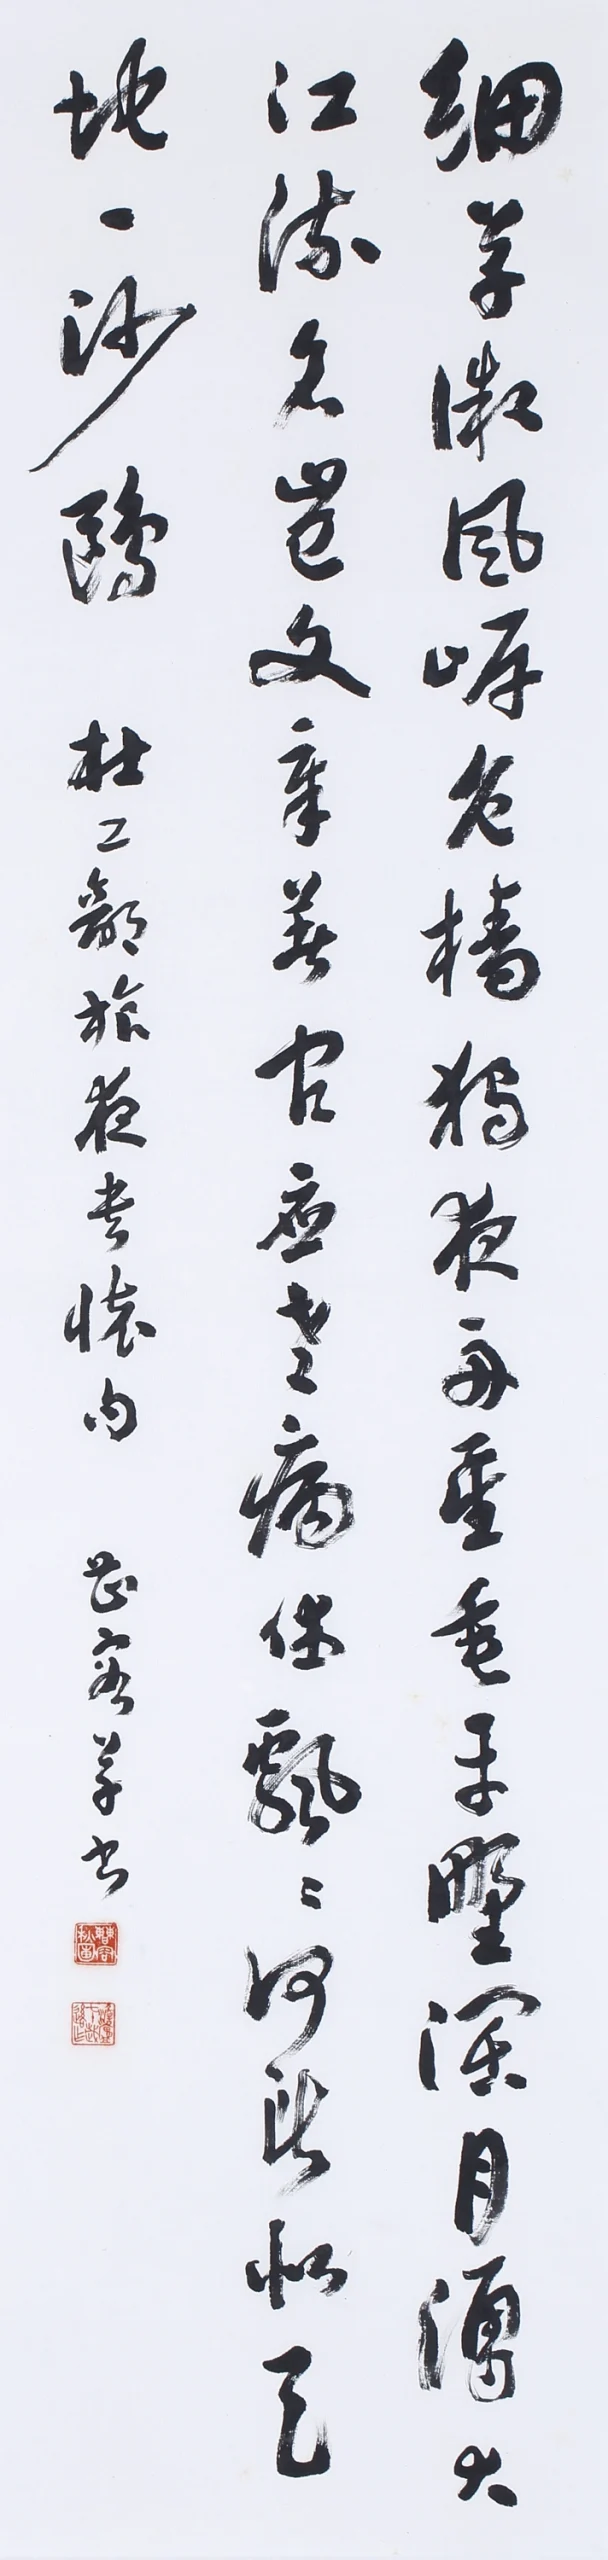 细草微风岸危樯独夜舟星垂平野阔月涌大
江流名岂文章著官应老病休飘飘何所似天
地一沙鸥 杜工部旅夜书怀句